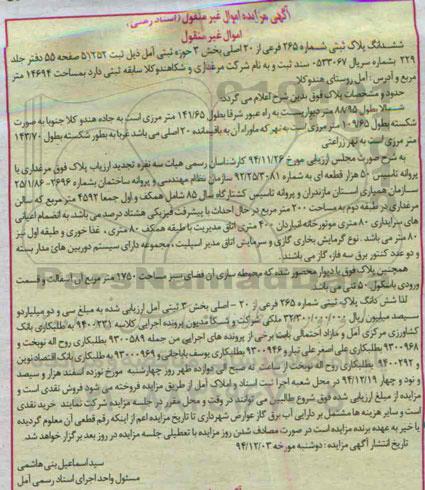 آگهی مزایده اموال غیر منقول (اسناد رهنی)
اموال غیر منقول
ششدانگ پلاک ثبتی شماره ۲۶۵ فرعی از ۲۰ اصلی بخش ۳ حوزه ثبتی آمل ذیل ثبت ۵۱۲۵۲ صفحه ۵۵ دفتر جلد
۲۲۹ بشماره سریال ۰۵۳۳۰۶۷ سند ثبت و به نام شرکت مرغداری و شکاهندوکلا سابقه ثبتی دارد بمساحت ۱۴۶۹۴ متر
مربع و آدرس: آمل روستای هندوکلا
حدود و مشخصات پلاک فوق بدین شرح اعلام می گردد:
شمالا بطول ۸۸/۹۵ متر دیواریست به راه عبور شرقا بطول ۱۴۱/۶۵ متر مرزی است به جاده هندو کلا جنوبا به صورت
شکسته بطول ۱۰۹/۶۵ متر مرزی است به نهر که ماوراء آن به باقیمانده ۲۰ اصلی می باشد غربا به بطور شکسته بطول ۱۴۳/۷۰
متر مرزی است به نهر زراعتی
به شرح صورت مجلس ارزیابی مورخ ۹۴/۱۱/۲۶ کارشناسان رسمی هیات سه نفره تجدید ارزیاب پلاک فوق مرغداری با
پروانه تاسیس ۵۰ هزار قطعه ای به شماره ۹۲/۲۵/۳۰۸۱ سازمان نظام مهندسی و پروانه ساختمان بشماره ۲۶۹۶-۲۵/۱/۸۶
سازمان همیاری استان مازندران و پروانه تاسیس کشتارگاه سال ۸۵ شامل همکف و اول جمعا ۴۵۹۲ متر مربع که سالن
مرغداری در طبقه دوم به مساحت ۲۰۰ متر مربع در حال احداث با پیشرفت فیزیکی هشتاد درصد می باشد به انضمام اعیانی
های سرایداری ۸۰ متری موتورخانه انباردان ۴۰۰ متری اتاق مدیریت با طبقه همکف ۸۰ متری، غذا خوری و طبقه اول نیز
۸۰ متر می باشد. نوع گرمایش بخاری گازی و سرمایش اتاق مدیر اسپلیت، مجموعه دارای سیستم دوربین های مدار بسته
و دو عدد کنتور برق سه فاز، گاز می باشند.
همچنین پلاک فوق با دیوار محصور شده که محوطه سازی آن فضای سبز مساحت ۱۷۵۰ متر مربع آن آسفالت و قسمت
ورودی باسکول ۵۰ تنی می باشد.
لذا شش دانگ پلاک ثبتی شماره ۲۶۵ فرعی از ۲۰ - اصلی بخش ۳ ثبتی آمل ارزیابی شده به مبلغ سی و دو میلیارد و
سیصد میلیون ریال ۳۲/۳۰۰/۰۰۰/۰۰۰ ملکی شرکت و شکا مدیون پرونده اجرایی کلاسه ۹۴۰۰۲۳۱ به طلبکاری بانک
کشاورزی مرکزی آمل و مازاد احتمالی بابت برخی از پرونده های اجرایی من جمله ۹۳۰۰۵۸۹ طلبکاری روح اله نوبخت و
۹۳۰۰۹۶۸ طلبکاری علی اصغر علی تبار و ۹۳۰۰۹۴۶ طلبکاری یوسف باباجانی و ۹۳۰۰۰۹۶۹ به طلبکاری بانک اقتصاد نوین
و ۹۴۰۰۲۹۲ به طلبکاری روح اله نوبخت از ساعت نه صبح الی دوازده ظهر روز چهارشنبه مورخ نوزده اسفند هزار و سیصد
و نود و چهار ۹۴/۱۲/۱۹ در محل شعبه اجرا ثبت اسناد و املاک آمل از طریق مزایده فروخته می شود فروش نقدی است و
مزایده از مبلغ ارزیابی شده فوق شروع طالبین می توانند در وقت و محل مقرر در جلسه مزایده شرکت نمایند خرید نقدی
است و سایر هزینه ها مشتمل بر دارایی آب برق گاز عوارض شهرداری تا تاریخ مزایده اعم از اینکه رقم قطعی آن معلوم گردیده
یا خیر به عهده برنده مزایده است در صورت مصادف شدن روز مزایده با تعطیلی جلسه مزایده در روز بعد برگزار خواهد شد.
تاریخ انتشار آگهی مزایده: دوشنبه مورخه ۹۴/۱۲/۰۳
سید اسماعیل بنی هاشمی
مسئول واحد اجرای اسناد رسمی آمل